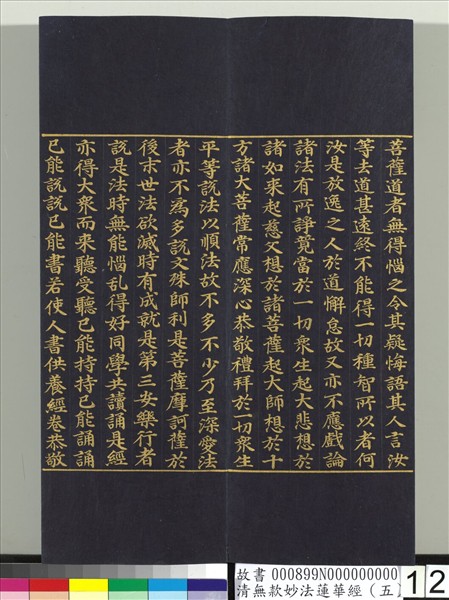 菩薩道者無得惱之令其疑悔語其人言汝
等去道甚遠終不能得一切種智所以者何
汝是放逸之人於道懈怠故又亦不應戲論
諸法有所諍競當於一切衆生起大悲想於
諸如來起慈父想於諸菩薩起大師想於十
方諸大菩薩常應深心恭敬禮拜於一切衆生
平等說法以順法故不多不少乃至深愛法
者亦不為多說文殊師利是菩薩摩訶薩於
後末世法欲滅時有成就是第三安樂行者
說是法時無能惱乱得好同學共讀誦是經
亦得大衆而來聽受聽已能持持已能誦誦
已能說說已能書若使人書供養經卷恭敬
故書 000899N000000000
清無款妙法蓮華經（五）
12